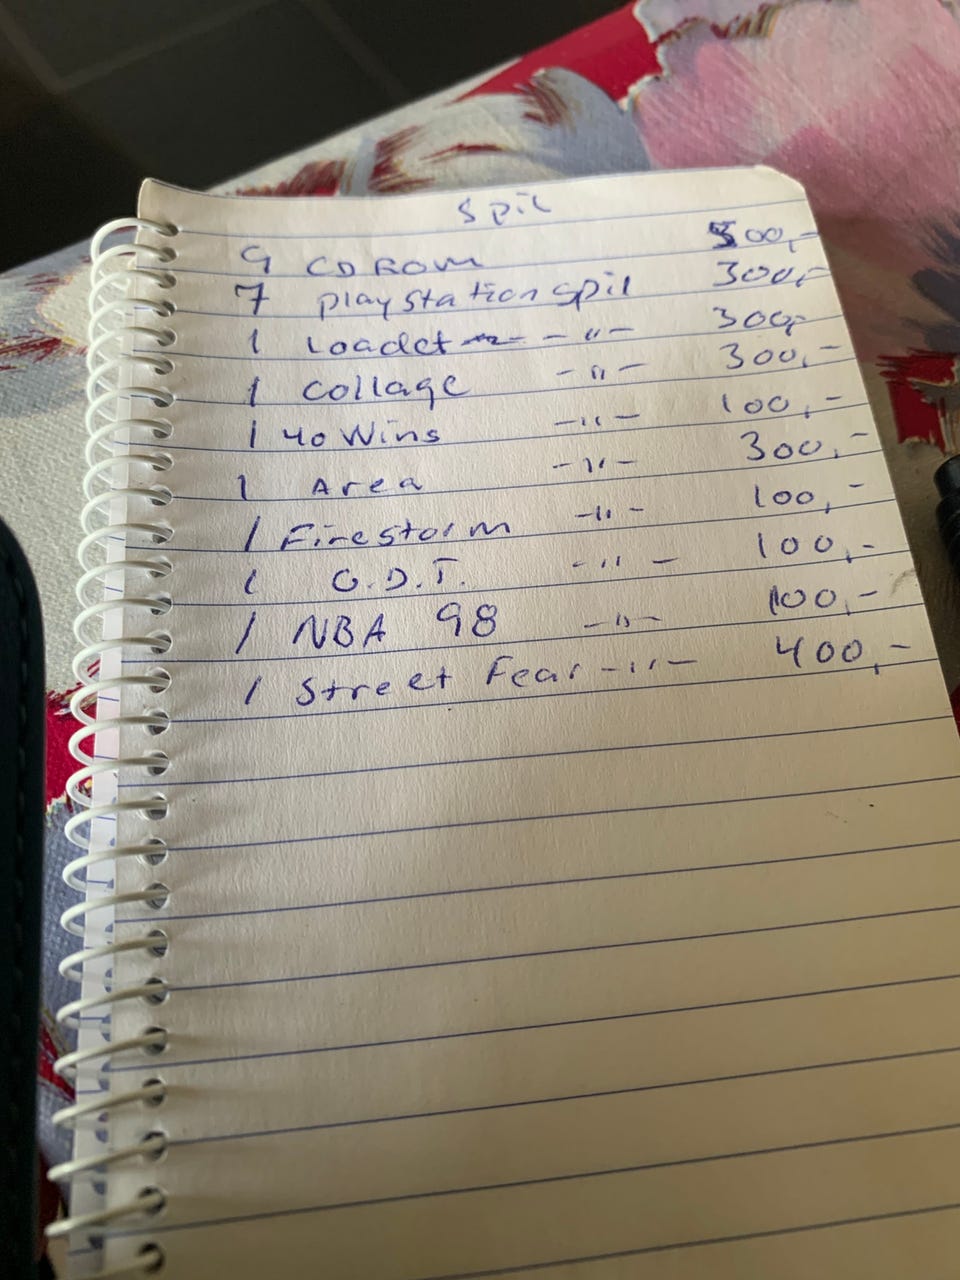 Spil
9 CD ROM 500,-
7 playstation spil 300,-
1 Loadet - " - 300,-
1 Collage - " - 300,-
1 40 Wins - " - 100,-
1 Area - " - 300,-
1 Firestorm - " - 100,-
1 O.D.T. - " - 100,-
1 NBA 98 - " - 100,-
1 Street Fear - " - 400,-